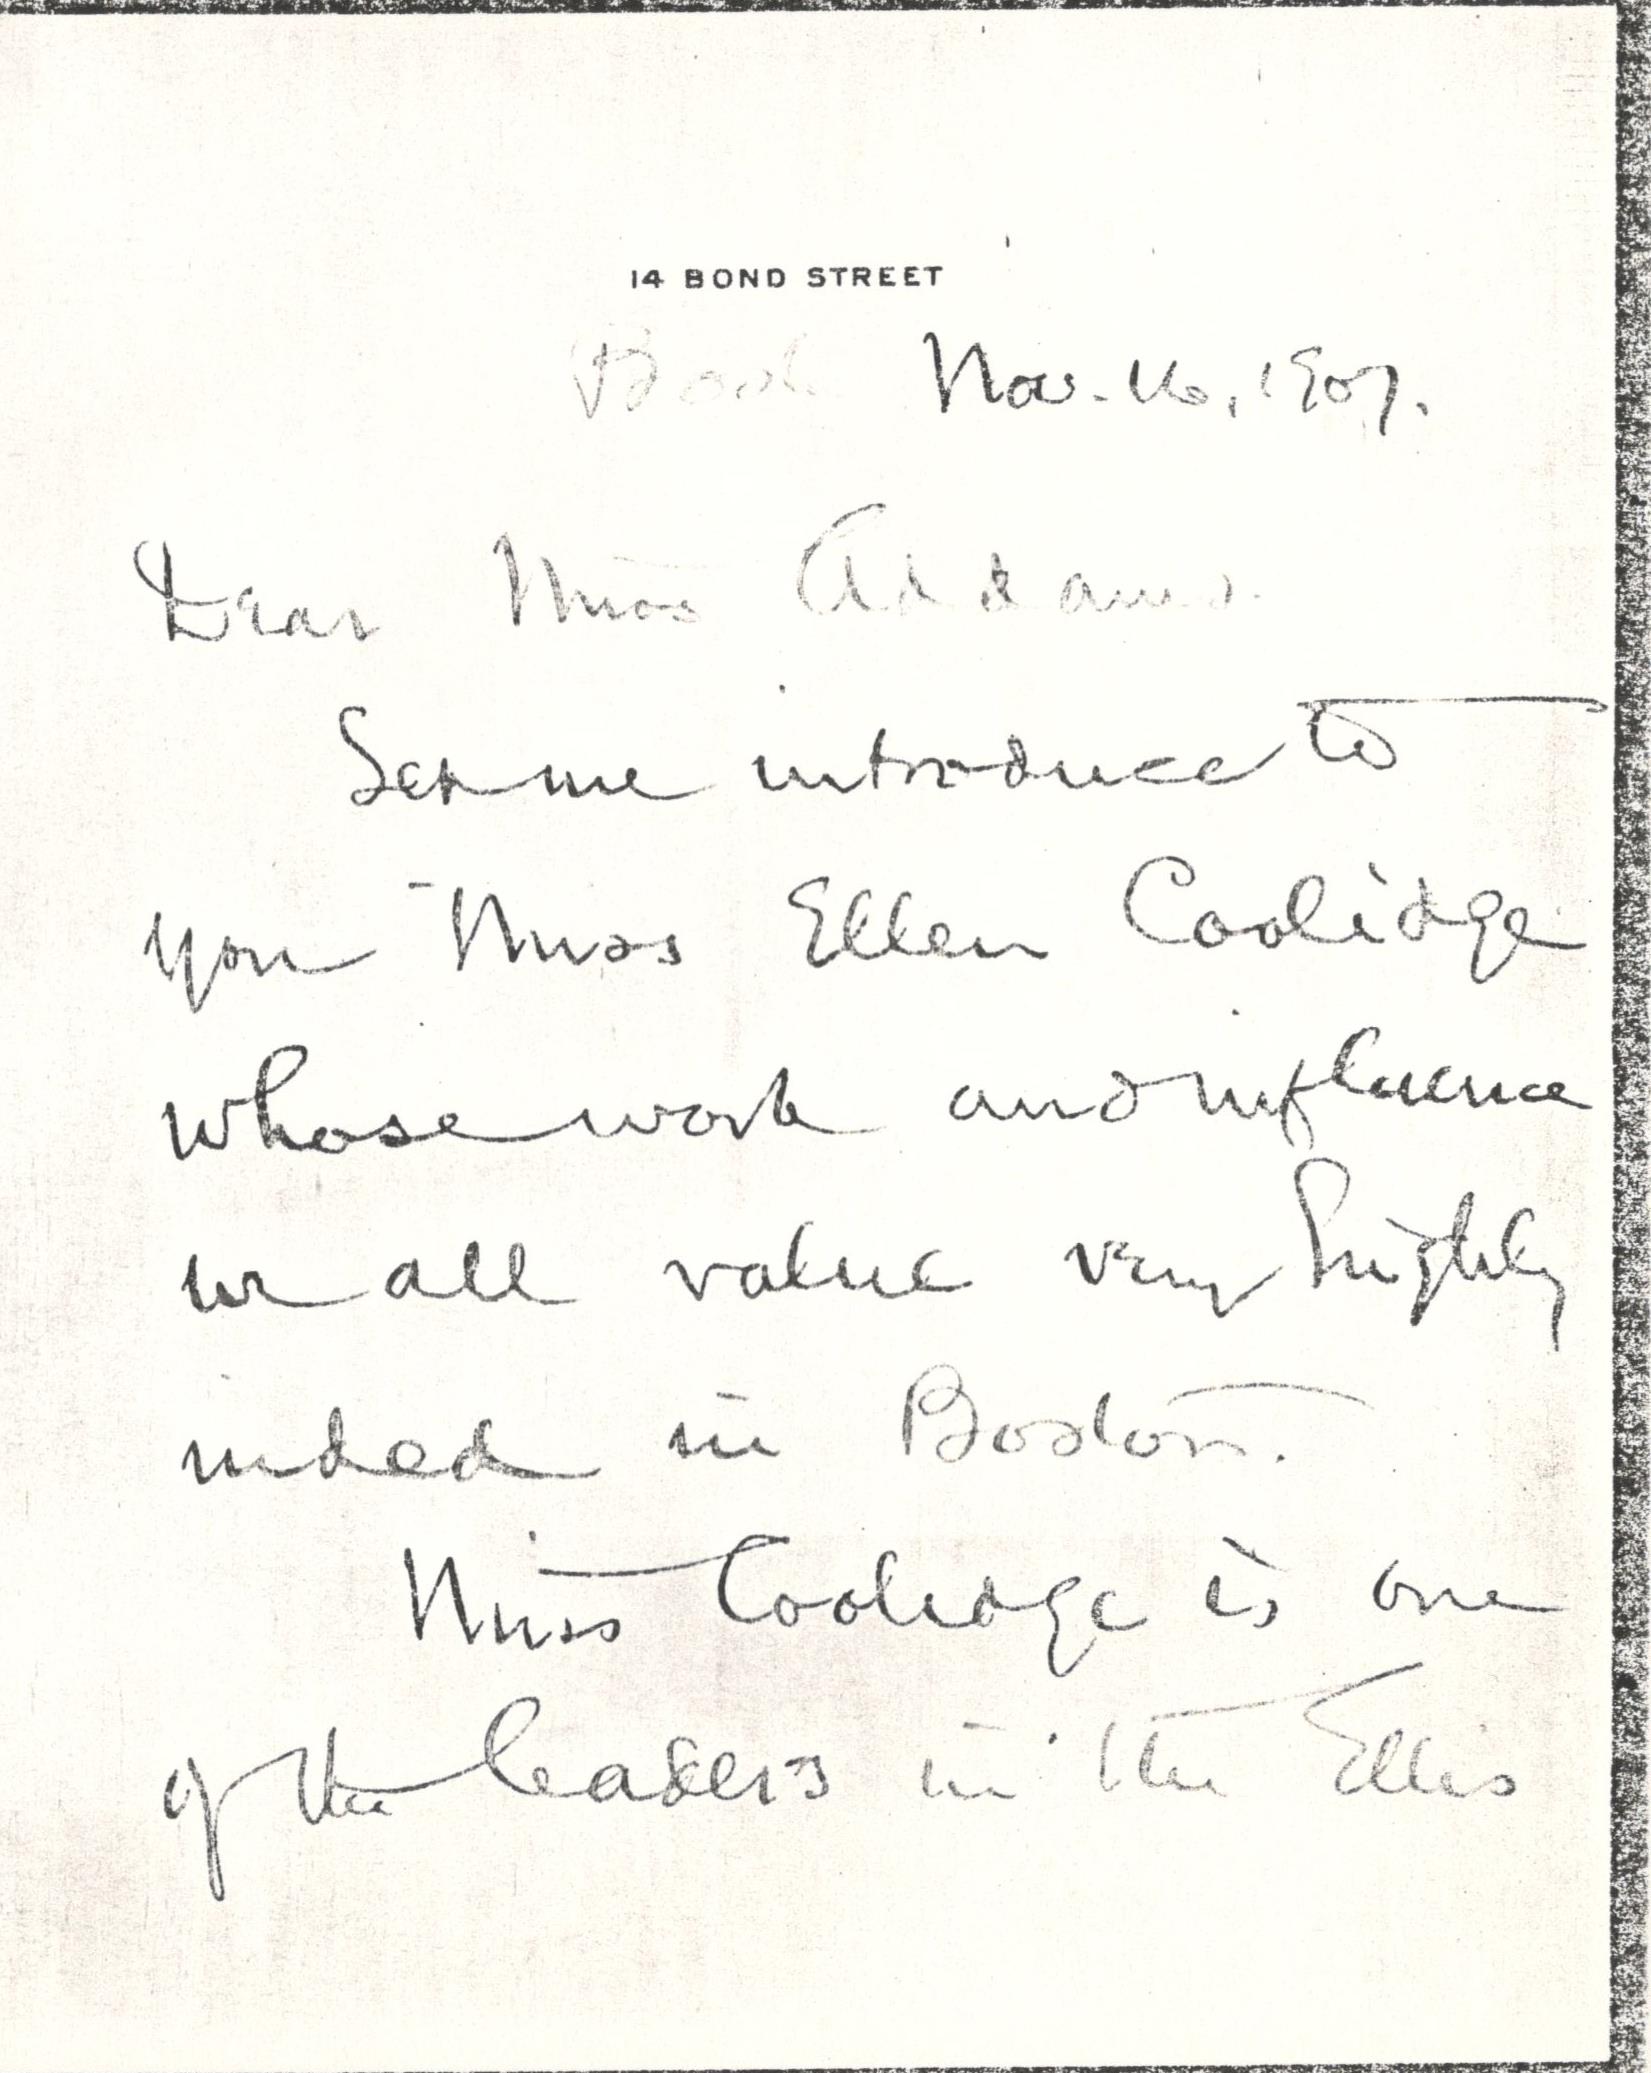 14 BOND STREET
Nov. 16, 1907.
Dear Miss Addams.
Let me introduce to
you Miss Ellen Coolidge
whose work and influence
we all value very highly
indeed in Boston.
Miss Coolidge is one
of the leaders in the Ellis